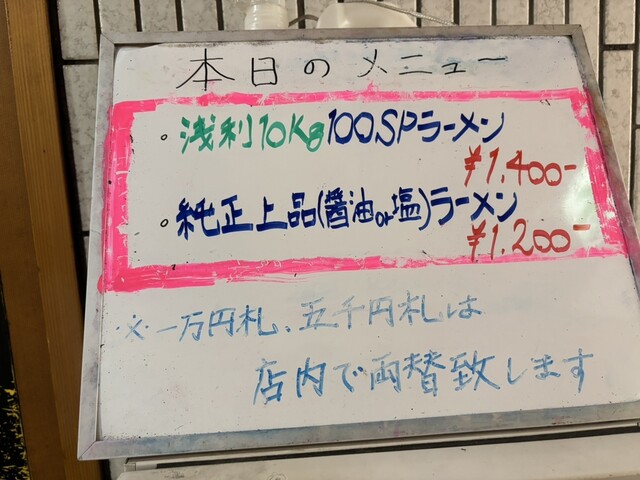 本日のメニュー
。浅利10Kg100SPラーメン
¥1.400-
。純正上品(醤油or塩)ラーメン
¥1.200-
※一万円札、五千円札は
店内で両替致します